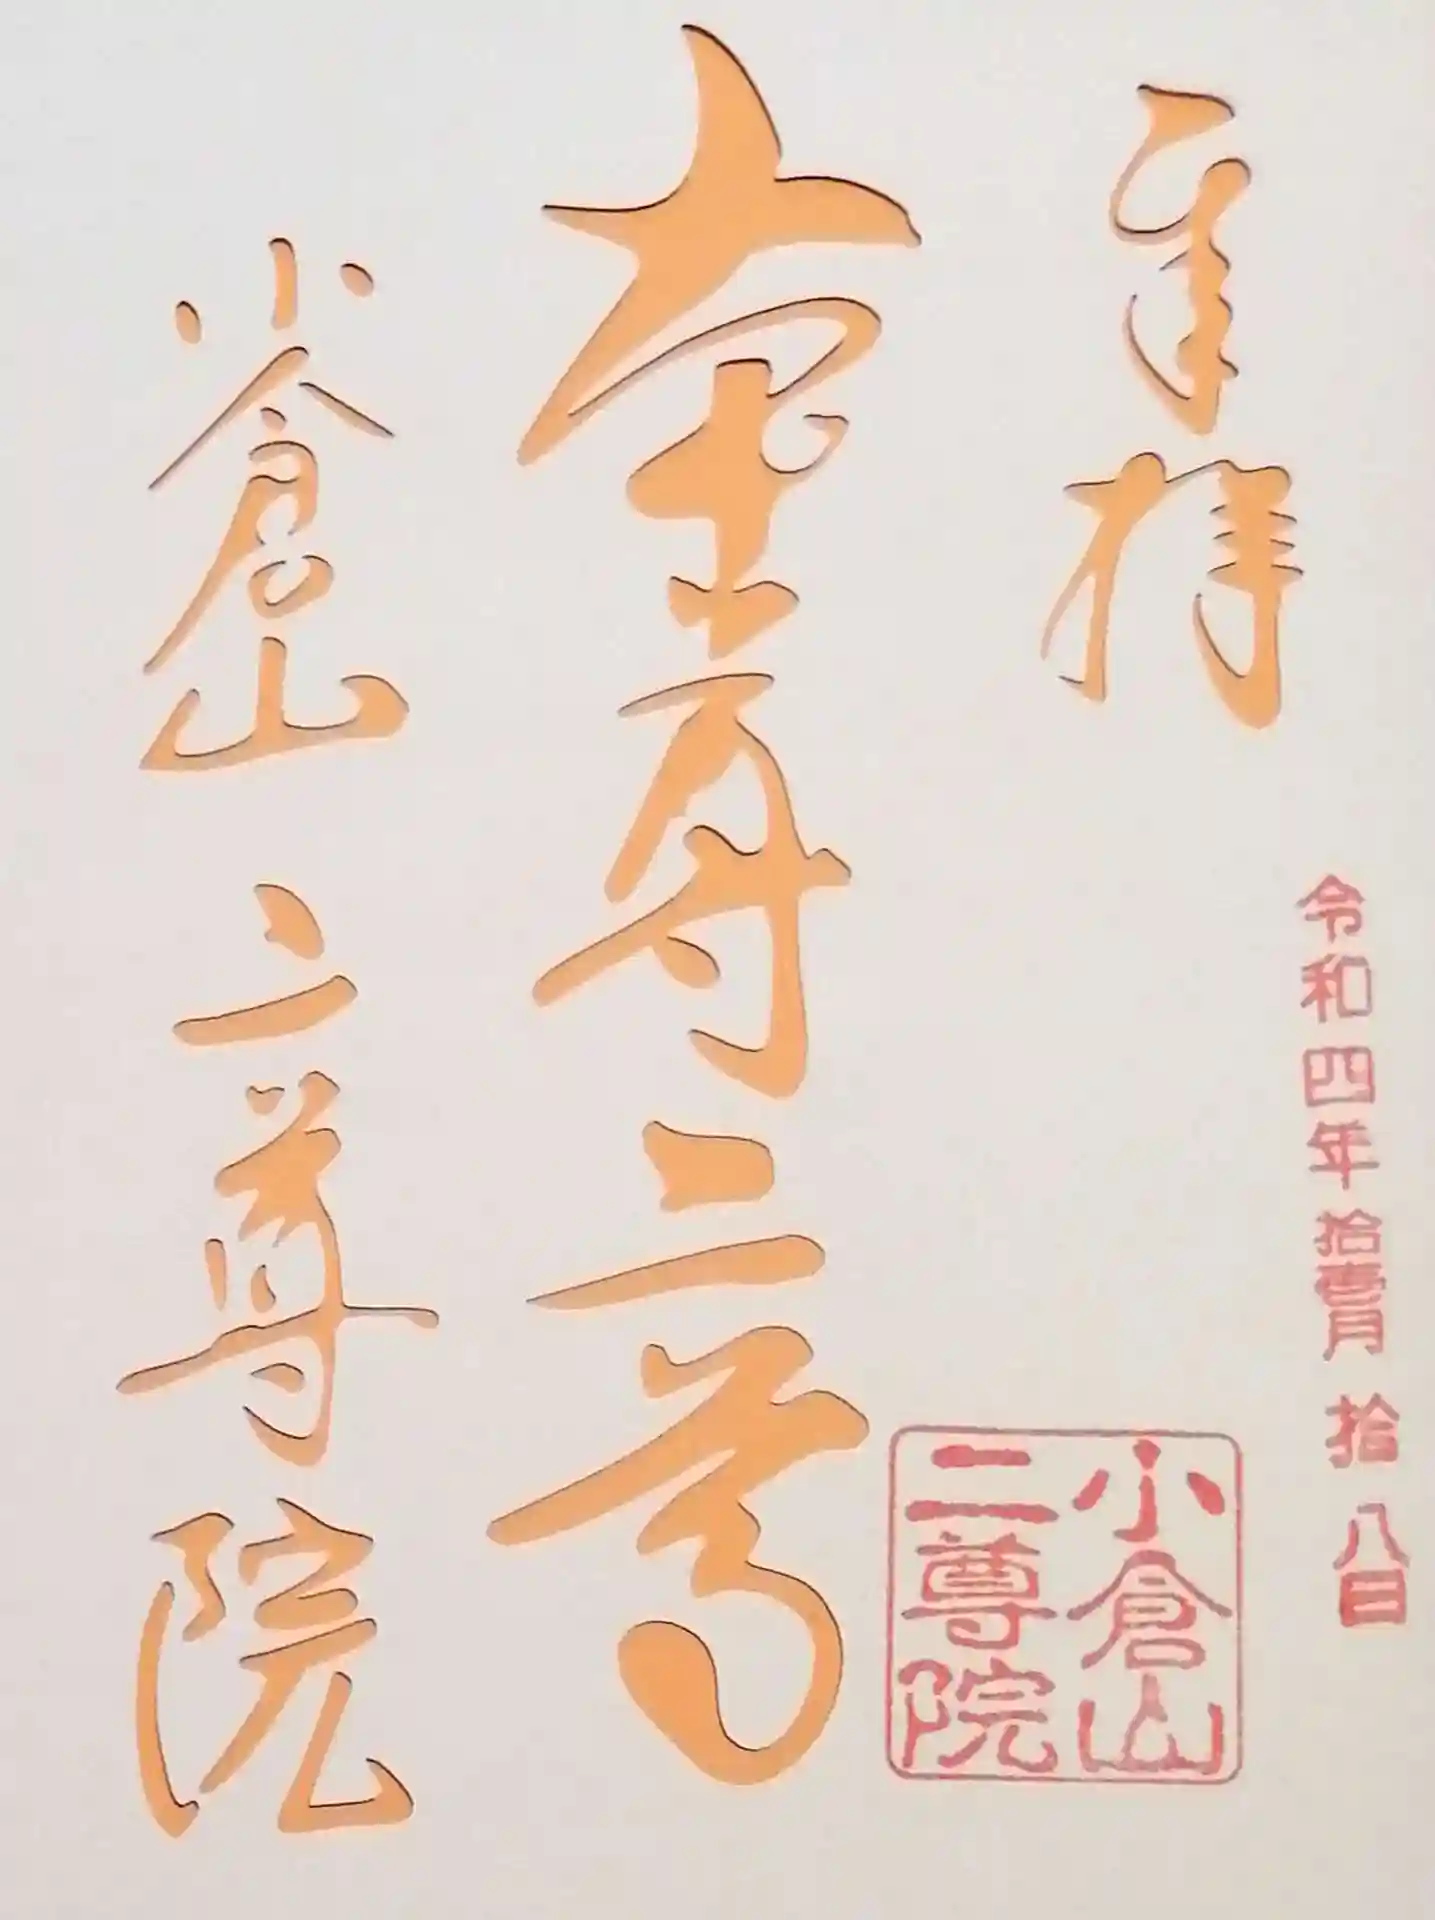 奉拝
小倉山 二尊院
令和四年拾壹月拾八日
小倉山
二尊院